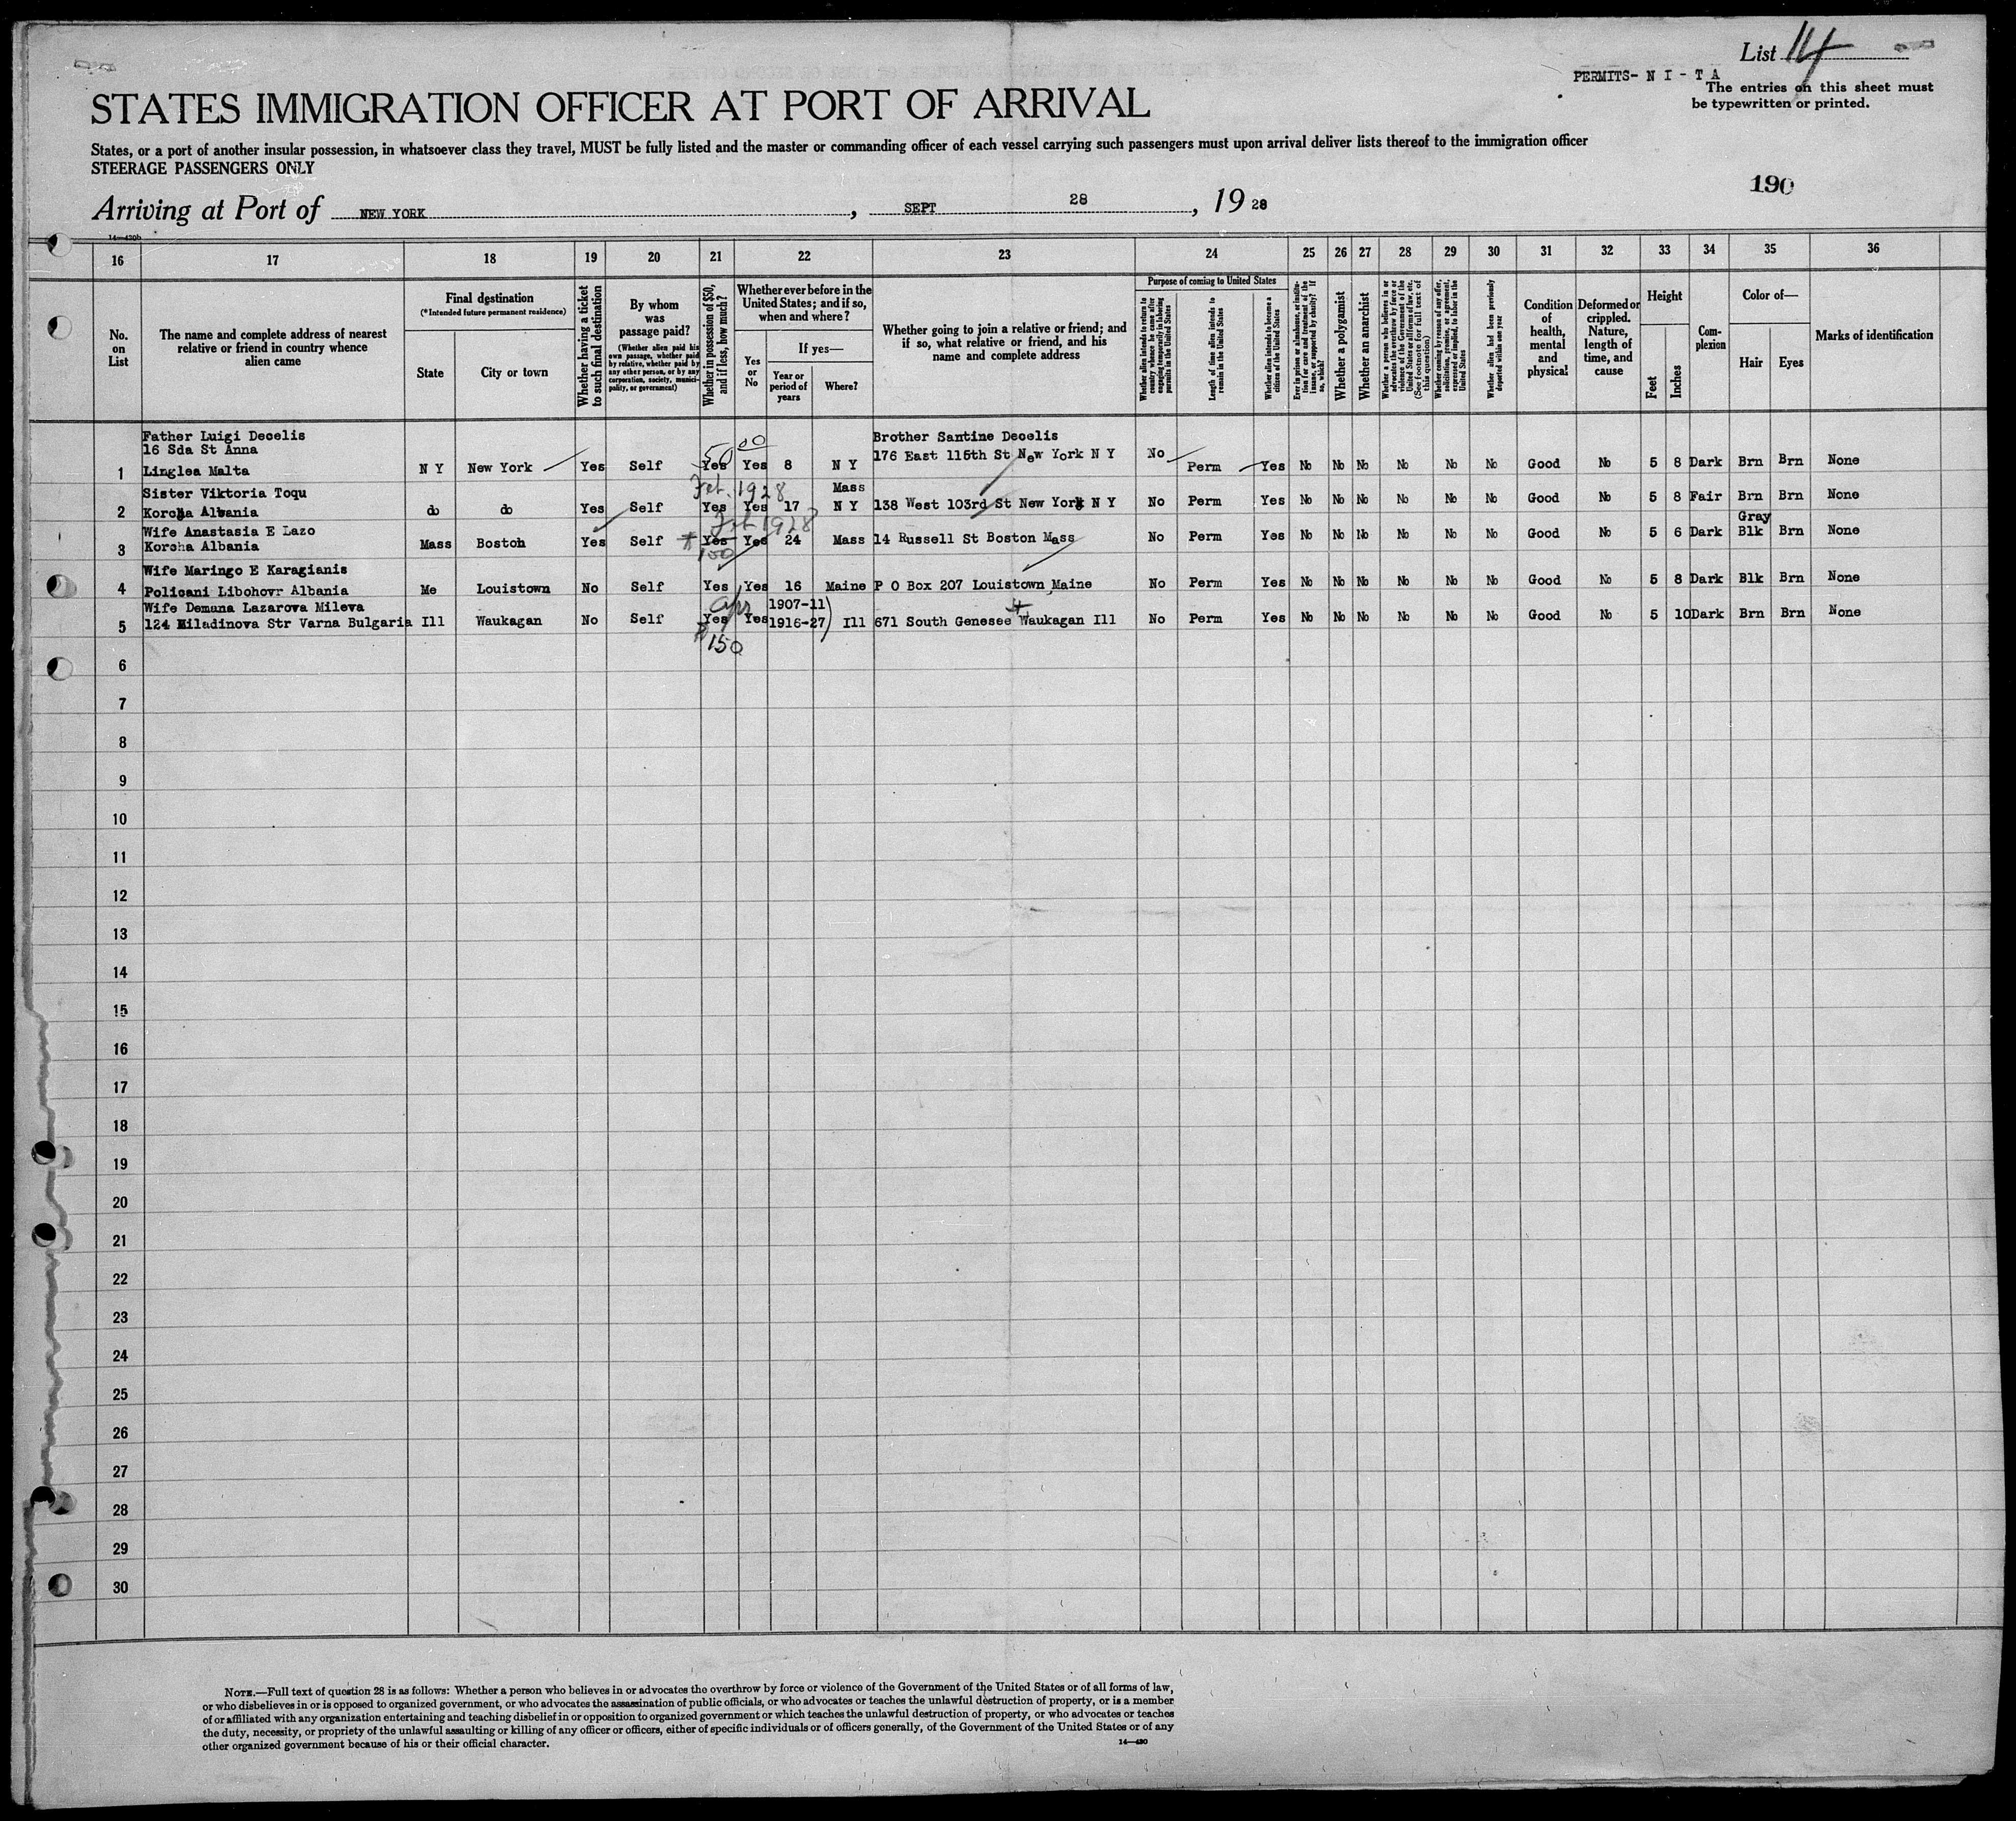 List 14
PERMITS- N I - T A
The entries on this sheet must
be typewritten or printed.
STATES IMMIGRATION OFFICER AT PORT OF ARRIVAL
States, or a port of another insular possession, in whatsoever class they travel, MUST be fully listed and the master or commanding officer of each vessel carrying such passengers must upon arrival deliver lists thereof to the immigration officer
STEERAGE PASSENGERS ONLY
190
Arriving at Port of NEW YORK, SEPT 28, 1928
14—430b
16 17 18 19 20 21 22 23 24 25 26 27 28 29 30 31 32 33 34 35 36
No.
on
List
The name and complete address of nearest
relative or friend in country whence
alien came
Final destination
(*Intended future permanent residence)
State
City or town
Whether having a ticket
to such final destination
By whom
was
passage paid?
(Whether alien paid his
own passage, whether paid
by relative, whether paid by
any other person, or by any
corporation, society, munici-
pality, or government)
Whether in possession of $50,
and if less, how much?
Whether ever before in the
United States; and if so,
when and where?
Yes
or
No
If yes—
Year or
period of
years
Where?
Whether going to join a relative or friend; and
if so, what relative or friend, and his
name and complete address
Purpose of coming to United States
Whether alien intends to return to
country whence he came after
engaging temporarily in laboring
pursuits in the United States
Length of time alien intends to
remain in the United States
Whether alien intends to become a
citizen of the United States
Ever in prison or almshouse, or institu-
tion for care and treatment of the
insane, or supported by charity? If
so, which?
Whether a polygamist
Whether an anarchist
Whether a person who believes in or
advocates the overthrow by force or
violence of the Government of the
United States or all forms of law, etc.
(See footnote for full text of
this question)
Whether coming by reason of any offer,
solicitation, promise, or agreement,
expressed or implied, to labor in the
United States
Whether alien had been previously
deported within one year
Condition
of
health,
mental
and
physical
Deformed or
crippled.
Nature,
length of
time, and
cause
Height
Feet
Inches
Com-
plexion
Color of—
Hair
Eyes
Marks of identification
Father Luigi Decelis
16 Sda St Anna
Brother Santine Decelis
176 East 115th St New York N Y
50 00
1 Linglea Malta N Y New York Yes Self Yes Yes 8 N Y No Perm Yes No No No No No No Good No 5 8 Dark Brn Brn None
Sister Viktoria Toqu Fet. 1928 Mass
2 Korcha Albania do do Yes Self Yes Yes 17 N Y 138 West 103rd St New York N Y No Perm Yes No No No No No No Good No 5 8 Fair Brn Brn None
Wife Anastasia E Lazo 1928 Gray
3 Korcha Albania Mass Boston Yes Self Yes Yes 24 Mass 14 Russell St Boston Mass No Perm Yes No No No No No No Good No 5 6 Dark Blk Brn None
150
Wife Maringo E Karagianis
4 Policani Libohovr Albania Me Louistown No Self Yes Yes 16 Maine P O Box 207 Louistown Maine No Perm Yes No No No No No No Good No 5 8 Dark Blk Brn None
Wife Demana Lazarova Mileva Apr 1907-11
5 124 Miladinova Str Varna Bulgaria Ill Waukagan No Self Yes Yes 1916-27) Ill 671 South Genesee Waukagan Ill No Perm Yes No No No No No No Good No 5 10 Dark Brn Brn None
150
6
7
8
9
10
11
12
13
14
15
16
17
18
19
20
21
22
23
24
25
26
27
28
29
30
NOTE.—Full text of question 28 is as follows: Whether a person who believes in or advocates the overthrow by force or violence of the Government of the United States or of all forms of law,
or who disbelieves in or is opposed to organized government, or who advocates the assassination of public officials, or who advocates or teaches the unlawful destruction of property, or is a member
of or affiliated with any organization entertaining and teaching disbelief in or opposition to organized government or which teaches the unlawful destruction of property, or who advocates or teaches
the duty, necessity, or propriety of the unlawful assaulting or killing of any officer or officers, either of specific individuals or of officers generally, of the Government of the United States or of any
other organized government because of his or their official character.
14—430